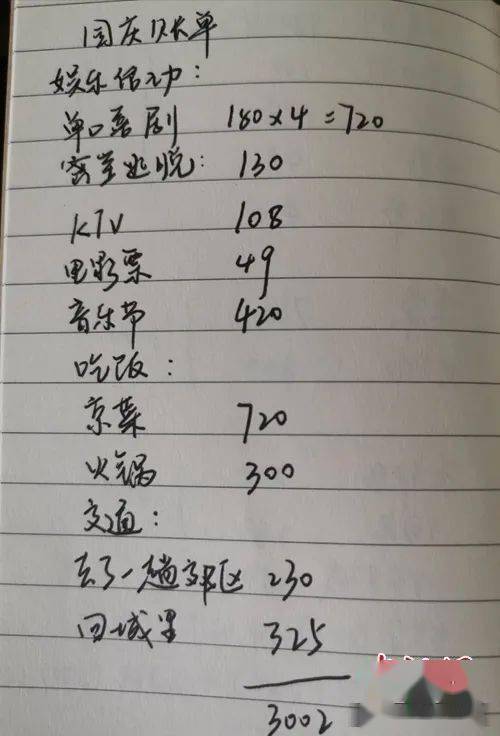 国庆账单
娱乐活动：
单口喜剧 180×4=720
密室逃脱： 130
KTV 108
电影票 49
音乐节 420
吃饭：
京菜 720
火锅 300
交通：
去了一趟郊区 230
回城里 325
3002